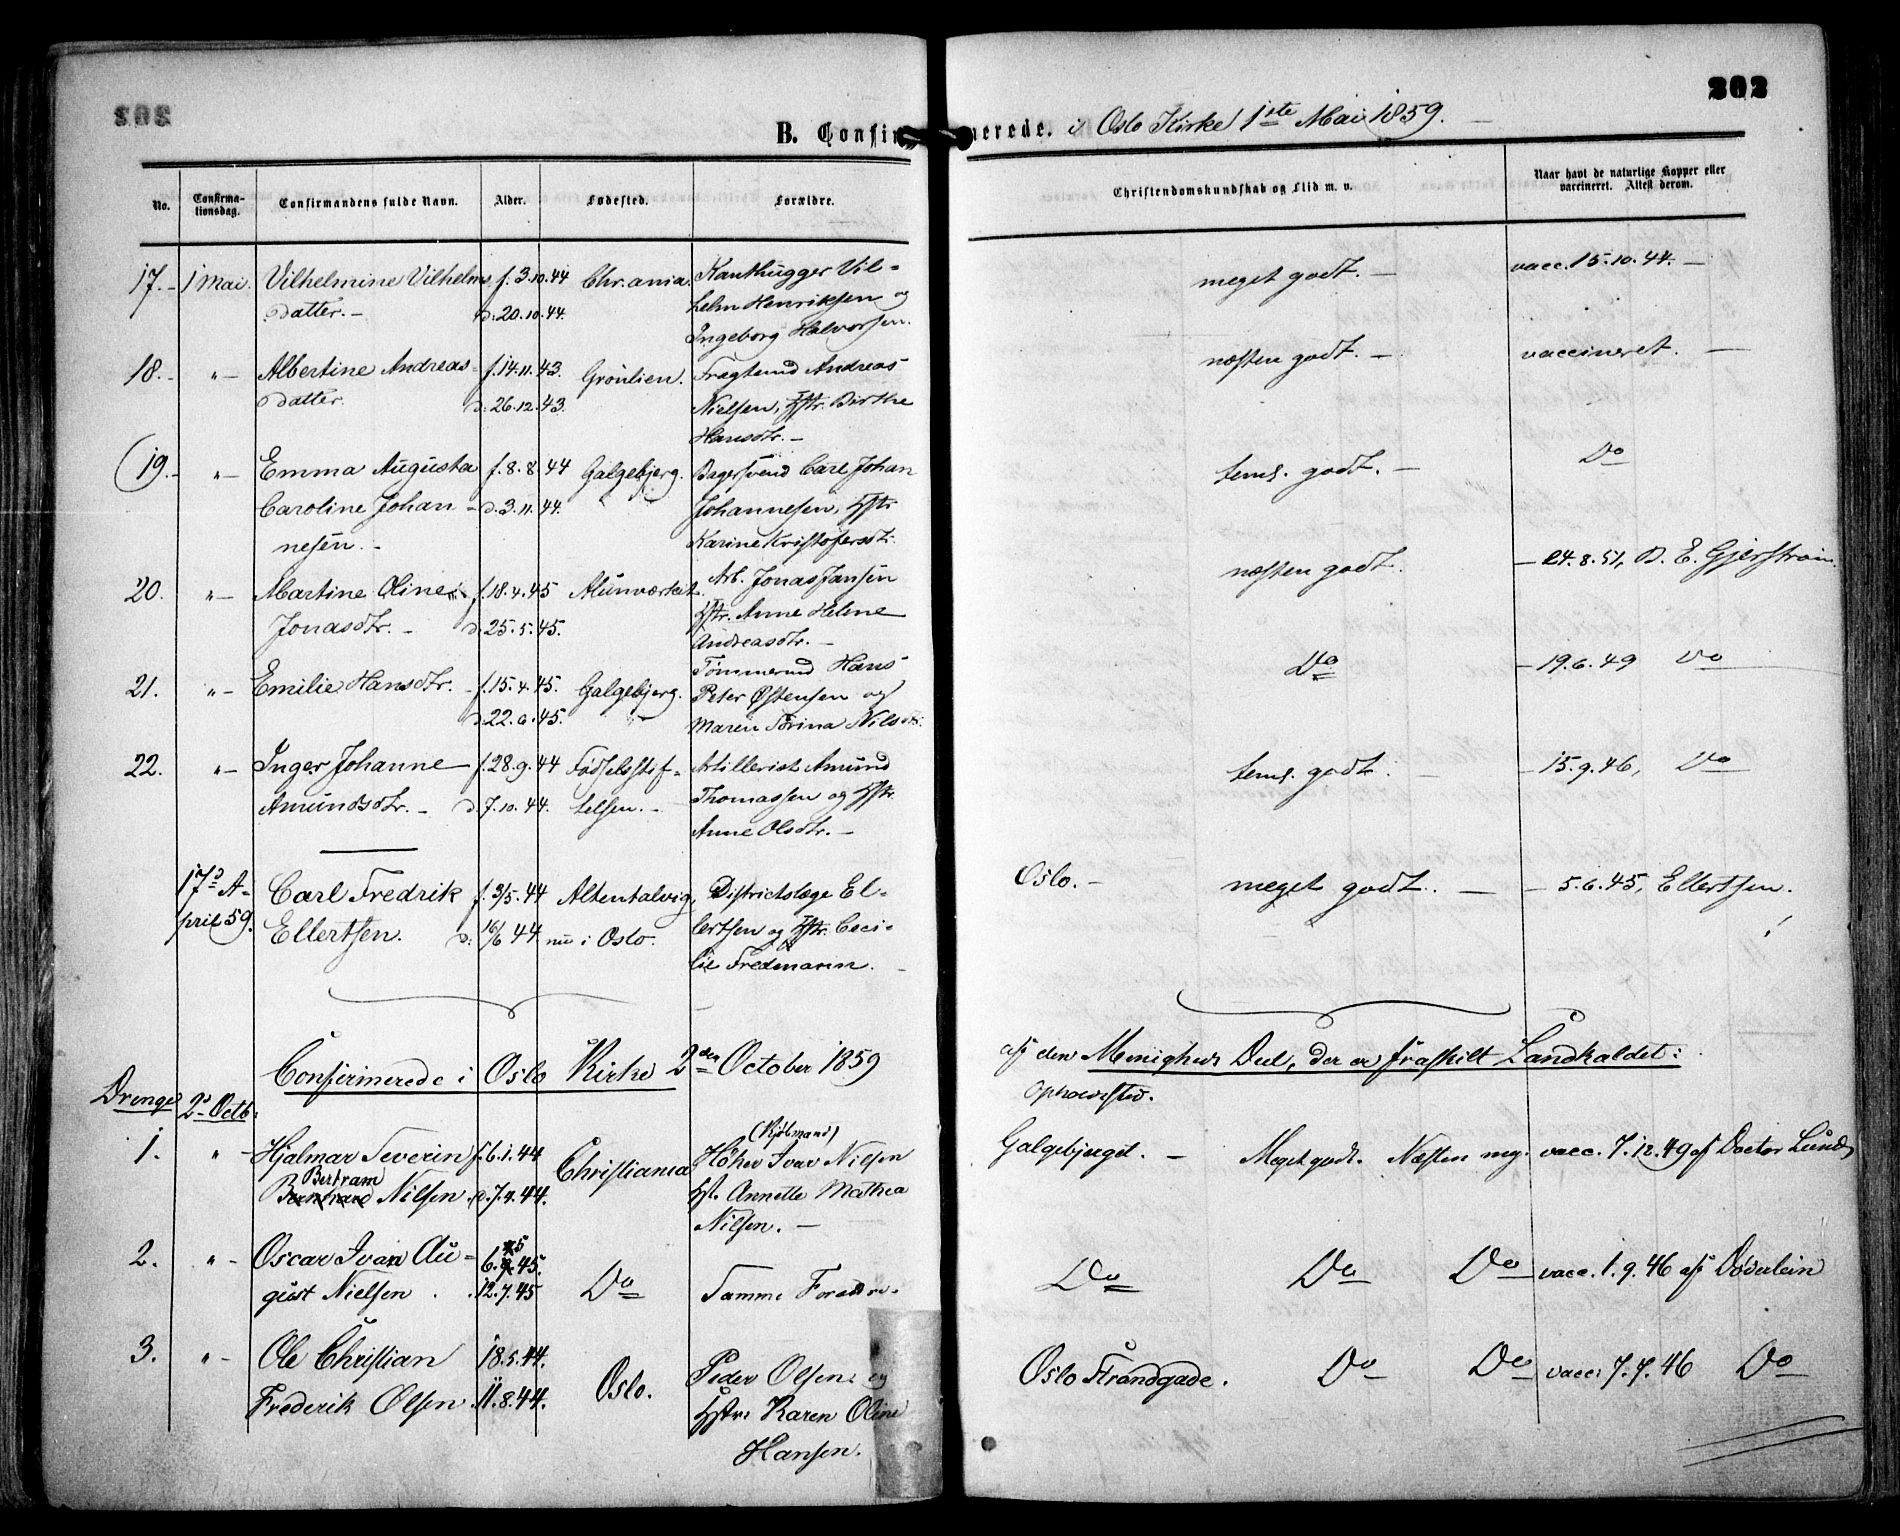 202
B. Confirmerede. i Oslo Kirke 1ste Mai 1859.
No. Confirmationsdag. Confirmandens fulde Navn. Alder. Fødested. Forældre. Christendomskundskab og Flid m. v. Naar havt de naturlige Kopper eller vaccineret. Attest derom.
17. 1 Mai. Vilhelmine Vilhelms f. 3.10.44 Chr.ania. Kanthugger Vil- meget godt. vacc. 15.10.44.
datter. d. 20.10.44. helm Henriksen og
Ingeborg Halvorsen.
18. " Albertine Andreas f. 14.11.43. Grønlien. Fragtmd Andreas næsten godt. vaccineret.
datter. d. 26.12.43. Nielsen, Hstr. Birthe
Hansdtr.
19. " Emma Augusta f. 8.8.44 Galgebjerg. Bagersvend Carl Johan teml. godt. Do
Caroline Johan d. 3.11.44. Johannesen, Hstr
nesen. Karine Kristofersdtr.
20. " Martine Oline f. 18.4.45 Alunværket. Arb. Jonas Jansen næsten godt. 24.8.51, D. E. Gjerstrøm
Jonasdtr. d. 25.5.45. Hstr. Anne Helene
Andreasdtr.
21. " Emilie Hansdtr. f. 15.4.45. Galgebjerg. Tømmermd Hans Do 19.6.49 Do
d. 22.6.45. Peter Østensen og
Maren Nilsdtr.
22. " Inger Johanne f. 28.9.44 Fødselsstif- Artillerist Amund teml. godt. 15.9.46, Do
Amundsdtr. d. 7.10.44. telsen. Thomassen og Hstr.
Anne Olsdtr.
17d A- Carl Fredrik f. 3/5.44 Altentalvig, Districtslæge El- Oslo. meget godt. 5.6.45, Ellertsen.
pril 59. Ellertsen. d. 16/6 44 nu i Oslo. lertsen og Hstr. Ceci-
lie Fredmann.
Confirmerede i Oslo Kirke 2den October 1859 af den Menigheds Deel, der er fraskilt Landkaldet:
Drenge 2d Octb: Opholdssted.
1. " Hjalmar Severin f. 6.1.44 Christiania (Kjøbmand) Høker Ivar Nilsen Galgebjerget. Meget godt. Næsten mg. vacc. 7.12.49 af Doctor Lund
Bertram Nilsen d. 7.4.44. Hst. Annette Mathea
Nilsen.
2. " Oscar Ivan Au- 6.5.45. Do Samme Forældre. Do Do Do vacc. 1.9.46 af Døderlein
gust Nielsen. 12.7.45
3. " Ole Christian 18.5.44. Oslo. Peder Olsen og Oslo Strandgade. Do Do vacc. 7.7.46 Do
Frederik Olsen. 11.8.44. Hstr. Karen Oline
Hansen.